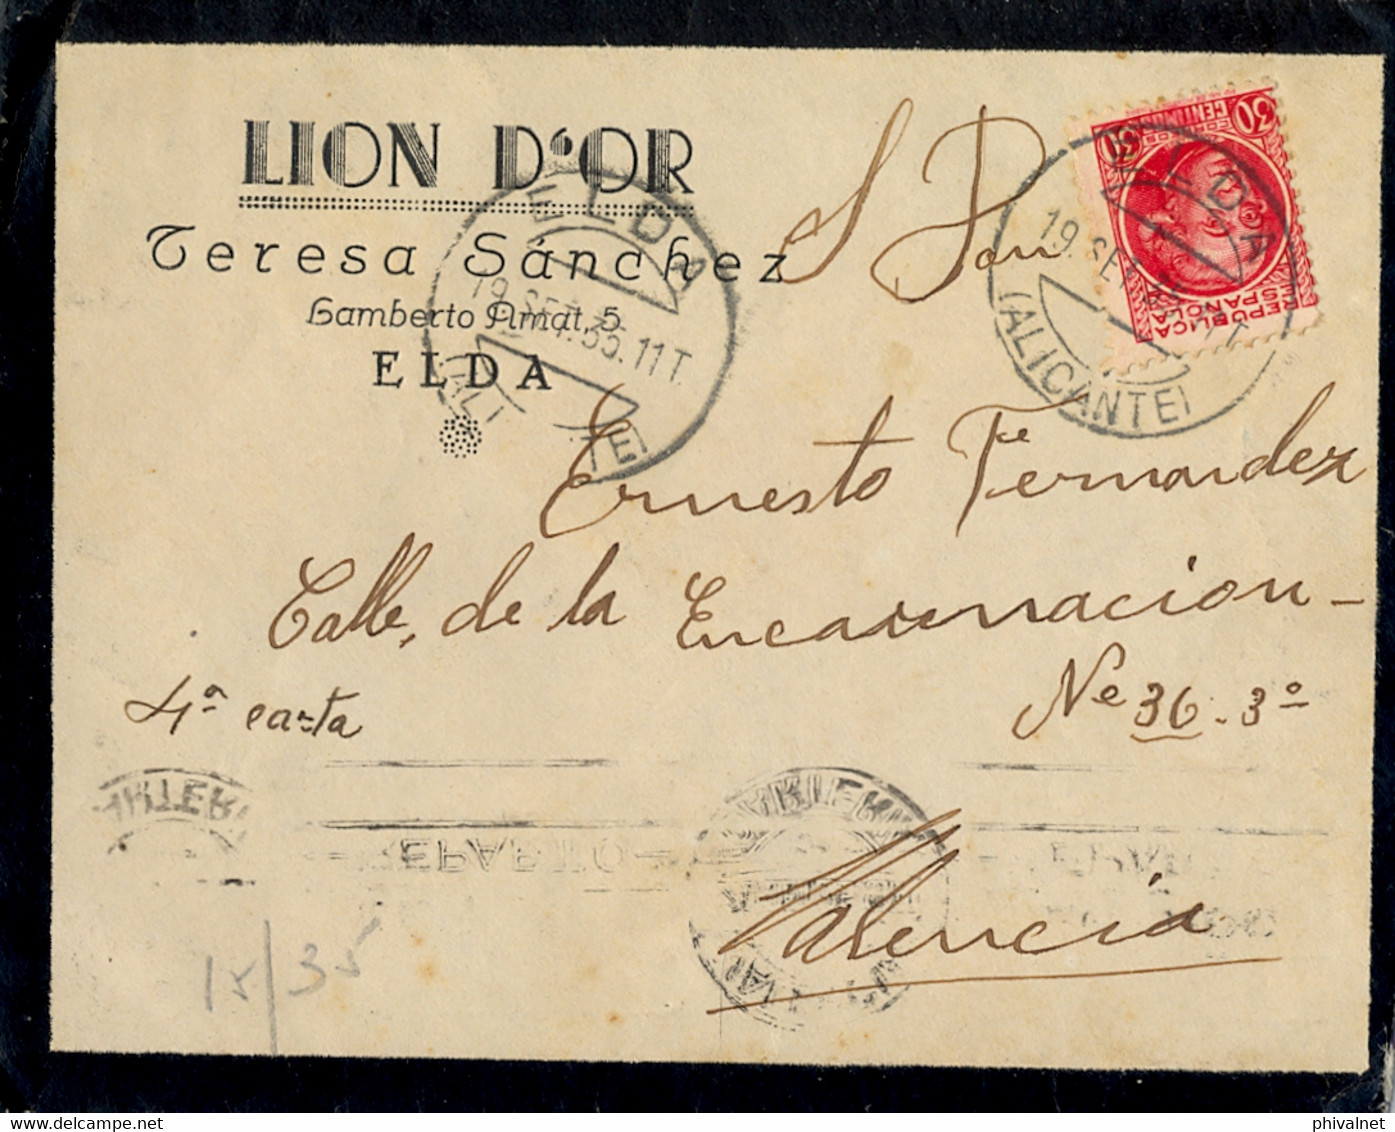 LION D'OR
Teresa Sánchez
Lamberto Amat, 5
ELDA
ELDA
19 SET. 35. 11 T.
(ALI TE)
30 CENTIMOS
CORREOS
30
REPUBLICA
ESPAÑOLA
ELDA
19. SET.
(ALICANTE)
S Don
Ernesto Fernandez
Calle, de la Encarnacion-
4ª carta
Nº 36-3º
CARTERI
REPARTO
Valencia
15/35
phivalnet